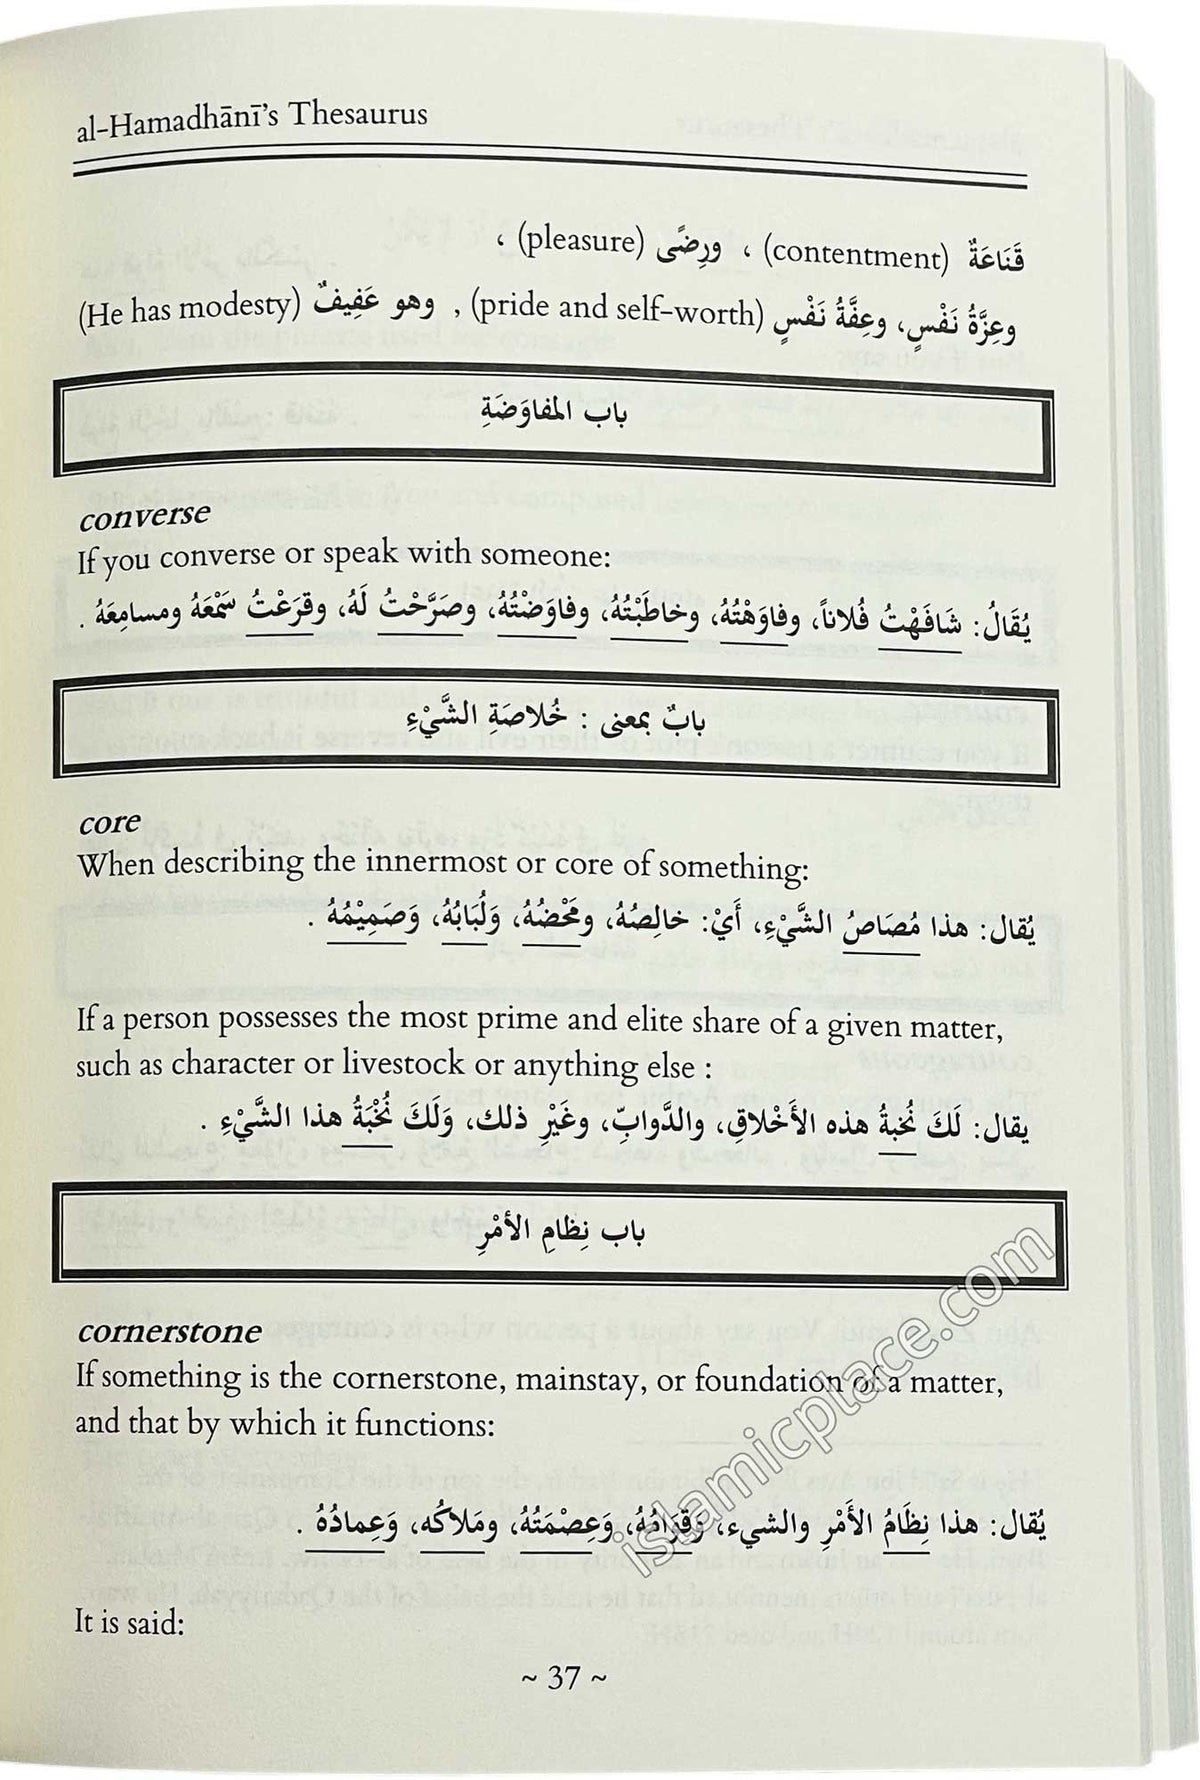 al-Hamadhānī's Thesaurus
قَنَاعَةٌ (contentment) ، ورِضًى (pleasure) ،
وعِزَّةُ نَفْسٍ، وعِفَّةُ نَفْسٍ (pride and self-worth) , وهو عَفِيفٌ (He has modesty)
باب المفاوَضَةِ
converse
If you converse or speak with someone:
يُقَالُ: شَافَهْتُ فُلاناً، وفاوَهْتُهُ، وخاطَبْتُهُ، وفاوَضْتُهُ، وصَرَّحْتُ لَهُ، وقرَعْتُ سَمْعَهُ ومسامِعَهُ .
بابٌ بمعنى : خُلاصَةِ الشَّيْءِ
core
When describing the innermost or core of something:
يُقال: هذا مُصَاصُ الشَّيْءِ، أَيْ: خالِصُهُ، ومَحْضُهُ، وَلُبَابُهُ، وَصَمِيْمُهُ .
If a person possesses the most prime and elite share of a given matter,
such as character or livestock or anything else :
يقال: لَكَ نُخبةُ هذه الأَخْلاقِ، والدَّوابِّ، وغَيْرِ ذلك، وَلَكَ نُخْبَةُ هذا الشَّيْءِ .
باب نِظامِ الأمْرِ
cornerstone
If something is the cornerstone, mainstay, or foundation of a matter,
and that by which it functions:
يُقال: هذا نِظَامُ الأَمْرِ والشيء، وَقِوَامُهُ، وَعِصْمَتُهُ، ومَلاكُه، وَعِمادُهُ .
It is said:
~ 37 ~
islamicplace.com